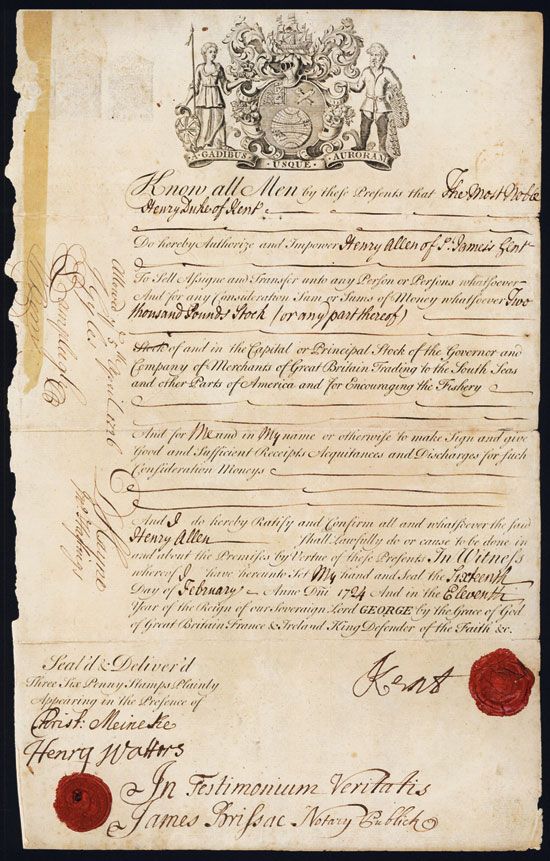 A GADIBUS USQUE AURORAM
Know all Men by these Presents that The Most Noble
Henry Duke of Kent
Do hereby Authorize and Impower Henry Allen of St. James's Gent
To Sell Assigne and Transfer unto any Person or Persons whatsoever
And for any Consideration Sum or Sums of Money whatsoever Two
thousand Pounds Stock (or any part thereof)
Stock of and in the Capital or Principal Stock of the Governor and
Company of Merchants of Great Britain Trading to the South Seas
and other Parts of America and for Encouraging the Fishery
And for Me and in My name or otherwise to make Sign and give
Good and Sufficient Receipts Acquitances and Discharges for such
Consideration Moneys
And I do hereby Ratify and Confirm all and whatsoever the said
Henry Allen shall Lawfully do or cause to be done in
and about the Premises by Vertue of these Presents In Witness
whereof I have hereunto Set My hand and Seal the Sixteenth
Day of February Anno Dni 1724 And in the Eleventh
Year of the Reign of our Sovereign Lord GEORGE by the Grace of God
of Great Britain France & Ireland King Defender of the Faith &c.
Seal'd & Deliver'd
Three Six Penny Stamps Plainly
Appearing in the Presence of
Christ: Meineke
Henry Watters
Kent
In Testimonium Veritatis
James Brissac Notary Publick
Allowed
April 1726